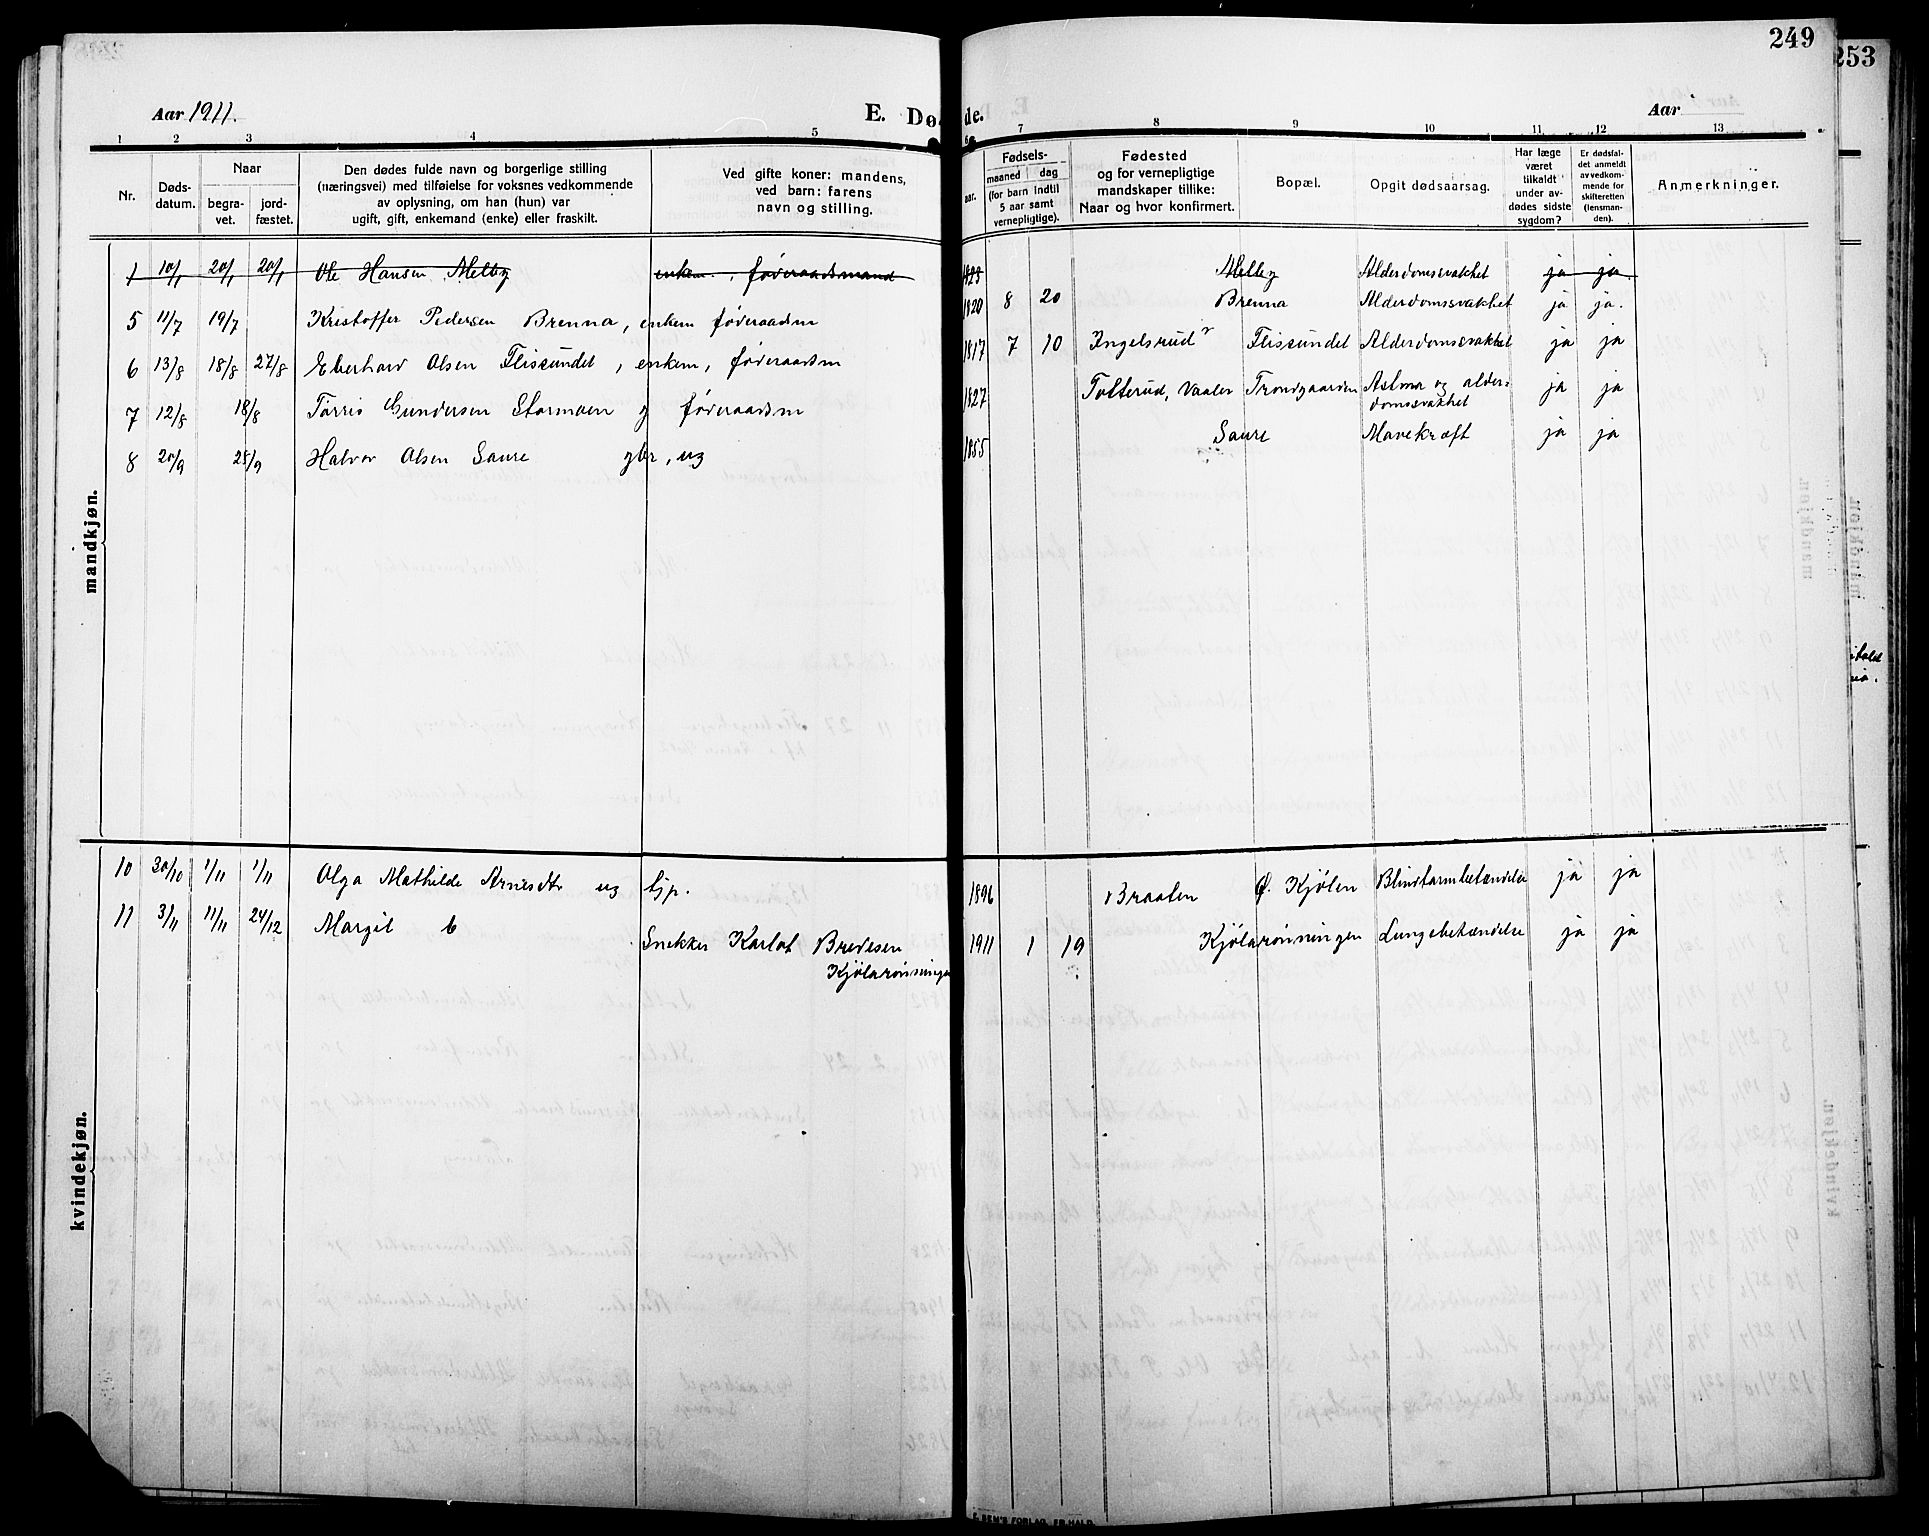 249
253
Aar 1911.
E. Døde.
Aar
1 2 3 4 5 6 7 8 9 10 11 12 13
Nr.
Døds-
datum.
Naar
begra-
vet.
jord-
fæstet.
Den dødes fulde navn og borgerlige stilling
(næringsvei) med tilføielse for voksnes vedkommende
av oplysning, om han (hun) var
ugift, gift, enkemand (enke) eller fraskilt.
Ved gifte koner: mandens,
ved barn: farens
navn og stilling.
aar.
Fødsels-
maaned dag
(for barn indtil
5 aar samt
vernepligtige).
Fødested
og for vernepligtige
mandskaper tillike:
Naar og hvor konfirmert.
Bopæl.
Opgit dødsaarsag.
Har læge
været
tilkaldt
under av-
dødes sidste
sygdom?
Er dødsfal-
det anmeldt
av vedkom-
mende for
skifteretten
(lensman-
den).
Anmerkninger.
mandkjøn.
1 10/1 20/1 20/1 Ole Hansen Melby enkem., føderaadsmand 1823 Melby Alderdomssvakhet ja ja
5 11/7 19/7 Kristoffer Pedersen Brenna, enkem føderaadsm 1820 8 20 Brenna Alderdomssvakhet ja ja.
6 13/8 18/8 27/8 Eberhard Olsen Flissundet, enkem, føderaadsm 1817 7 10 Ingelsrud Flissundet Alderdomssvakhet ja ja
7 12/8 18/8 Tørris Gundersen Stormoen g føderaadsm 1827 Tolterud, Vaaler Trondgaarden Astma og alder-
domssvakhet ja ja
8 20/9 28/9 Halvor Olsen Saure gbr, ug 1855 Saure Mavekræft ja ja
kvindekjøn.
10 30/10 1/11 1/11 Olga Mathilde Arnesdtr ug tjp. 1896 Braaten Ø. Kjølen Blindtarmbetændelse ja ja
11 3/11 11/11 24/12 Margit b Snekker Karlot Bredesen
Kjølarønningen 1911 1 19 Kjølarønningen Lungebetændelse ja ja